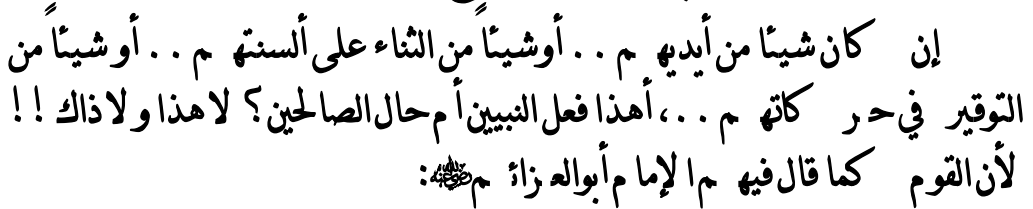 إن كان شيئا من أيديهم . . أو شيئاً من الثناء على ألسنتهم . . أو شيئاً من
التوقير في حركاتهم . . ، أهذا فعل النبيين أم حال الصالحين؟ لا هذا ولا ذاك ! !
لأن القوم كما قال فيهم الإمام أبوالعزائم رضي الله عنه: